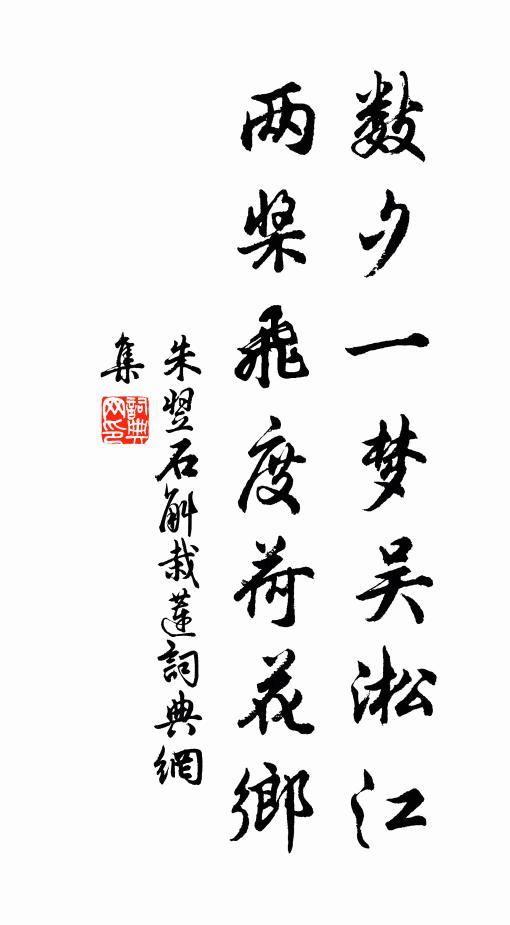 数夕一梦吴淞江
两桨飛度荷花鄉
朱翌石斛栽蓮詞典網
集
詞典
网印